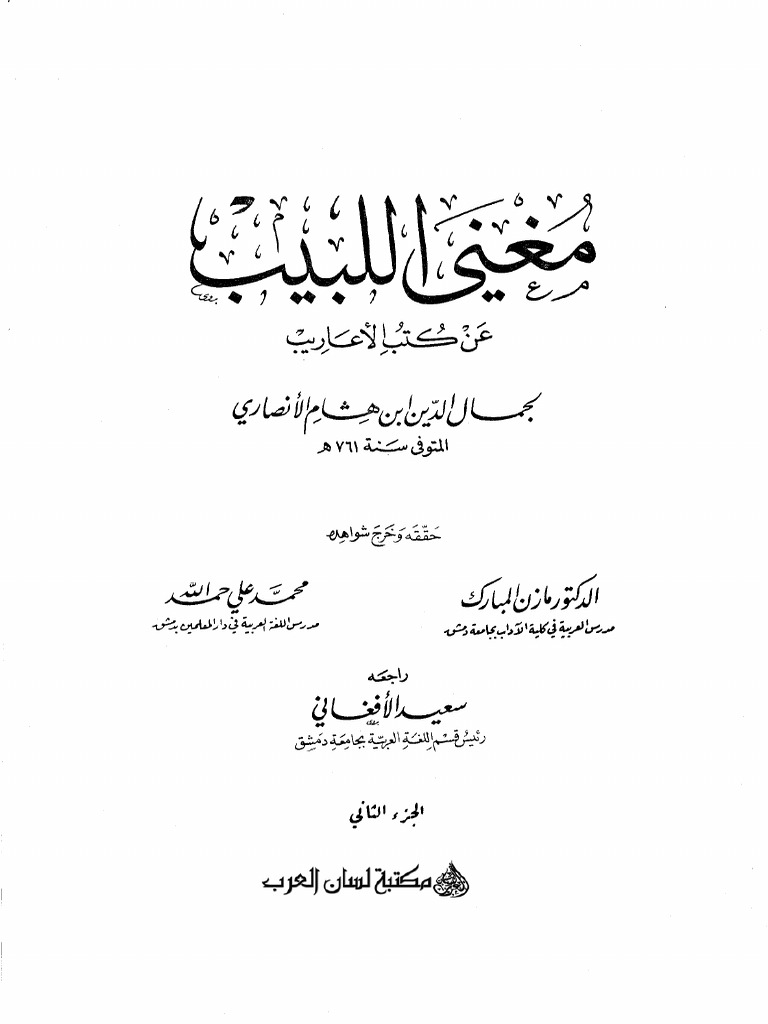 مُغني اللبيب
عَنْ كُتُبِ الأعَارِيبْ
لجمال الدّين ابن هشام الأنصاري
المتوفى سَنة ٧٦١ ه
حَقّقَه وَخَرّجَ شواهده
الدكتور مازن المبارك
مدرس العربية في كلية الآداب بجامعة دمشق
محمَّد علي حمد الله
مدرس اللغة العربية في دار المعلمين بدمشق
راجعَه
سعيد الأفغاني
رئيسُ قسْم اللغَةِ العَربيّة بجَامعَة دمَشِق
الجزء الثاني
مكتبة لسان العرب